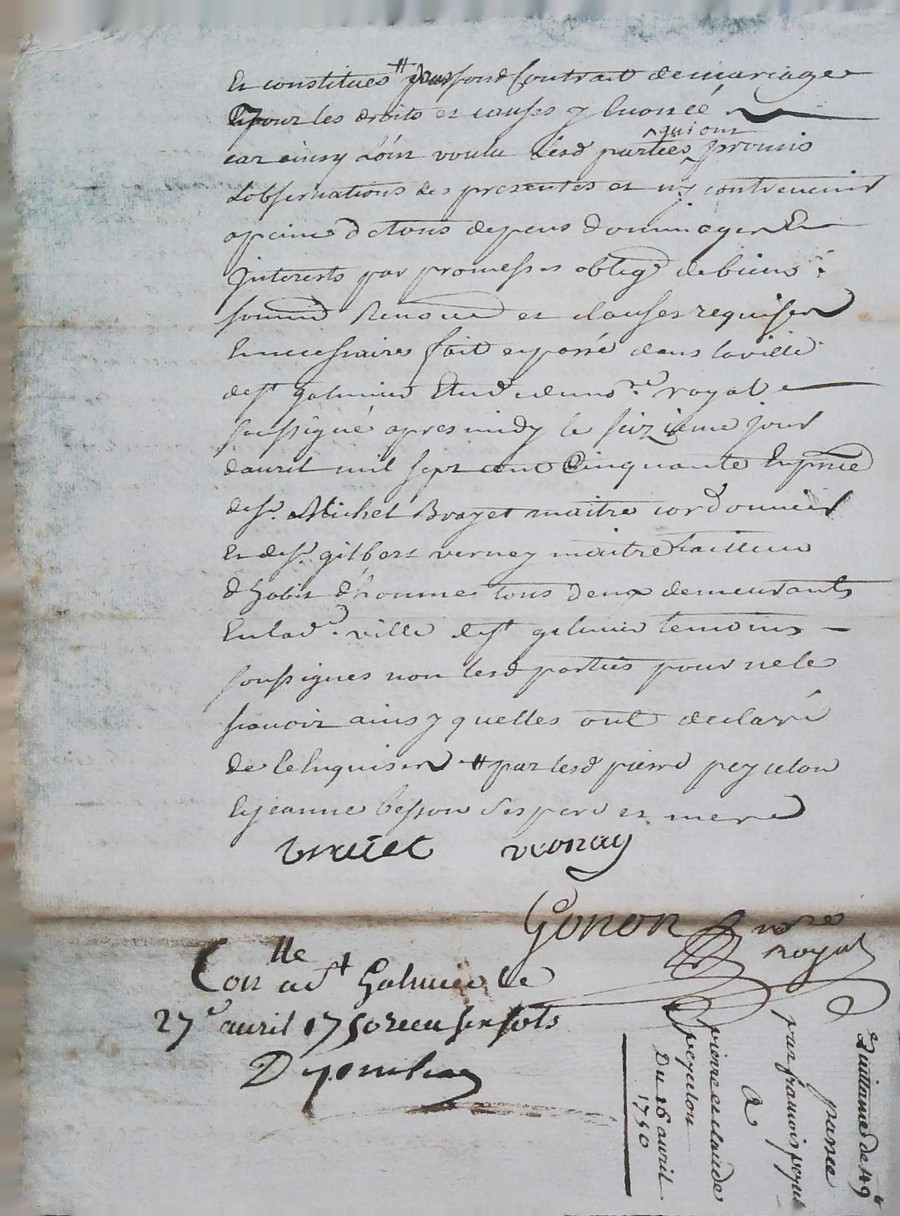 Et constitues # sond Contrait de mariage
Et pour les droits et causes y Enoncé
car ainsy L'ont voulu lesd parties qui ont promis
L'observations des presentes et ny contrevenir
a peine de tous depens dommages Et
Interests par promesses obligõ de biens
soumiõ Renonõ et clauses requises
Et necessaires fait et passé dans la ville
de st galmier Etude du nore royal
soussigné apres midy le seizieme jour
d'avril mil sept cent Cinquante En prnce
de sr. Michel Brayet maitre cordonnier
Et de sr. gilbert verney maitre tailleur
d'habit d'homme tous deux demeurants
En lad. ville de st galmier temoins
soussignes non lesd parties pour ne le
scavoir ainsy quelles ont declaré
de ce Enquises # par lesd pierre peyselon
Et jeanne besson ses pere et mere
brayet vernay
Gonon nore
royal
Conlle a st Galmier Le
27e avril 1750 receu six sols
Quittance de 49
passée
par francois peyse
A
pierre et claude
peyselon
Du 16 avril
1750